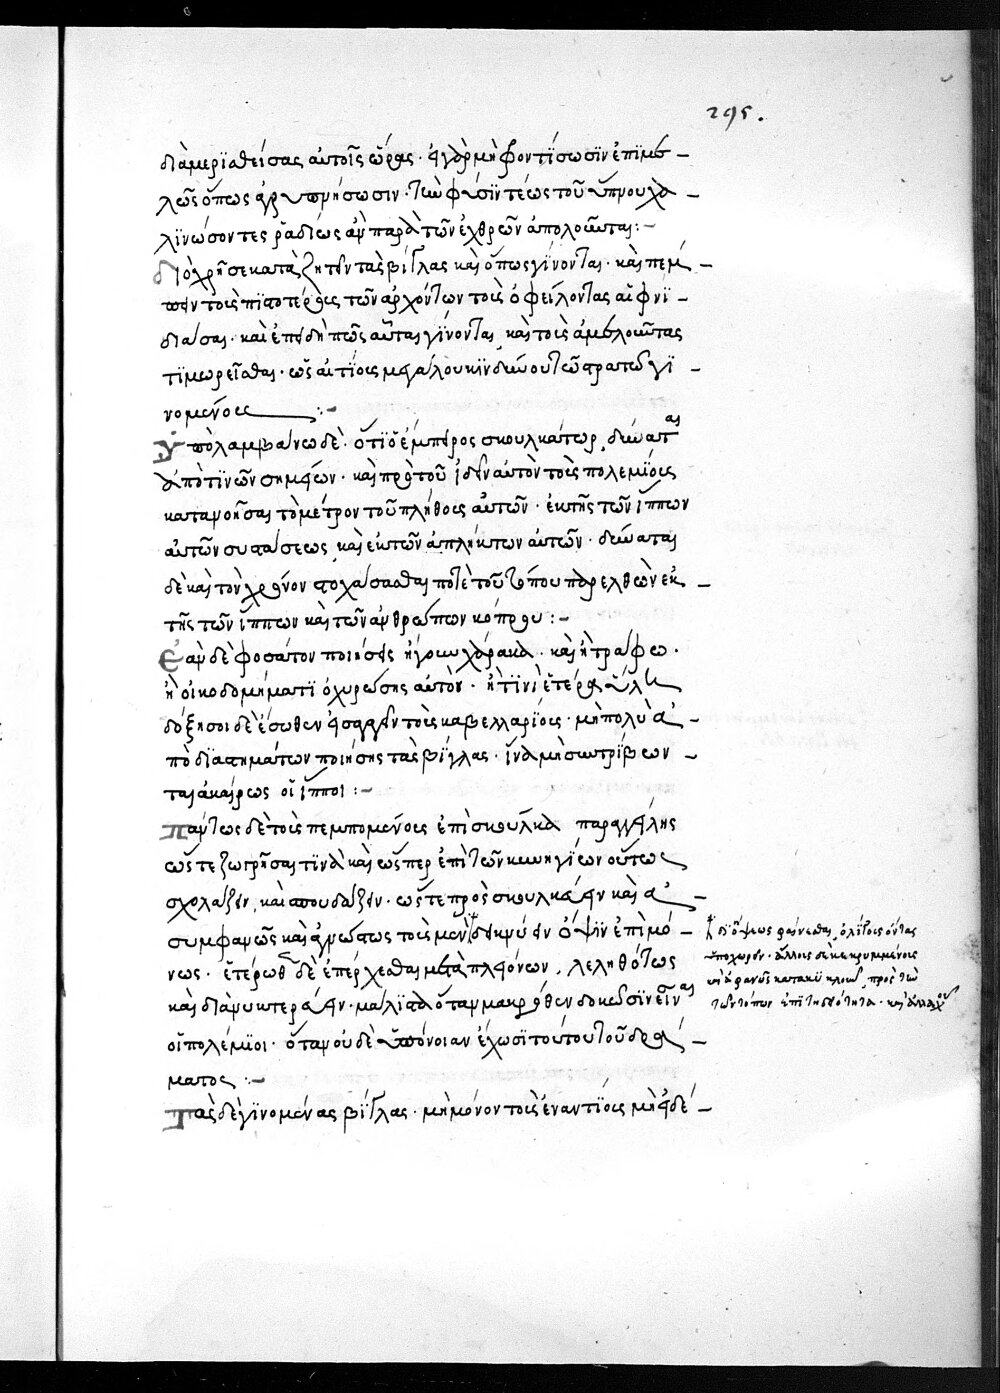 295.
διαμερισθείσας αὐτοῖς ὥρας· εἰ γὰρ μὴ φροντίσωσιν ἐπιμε
λῶς ὅπως ἀγρυπνήσωσιν· τῶ φύσει τέως τοῦ ὕπνου χα
λινώσοντες ῥαδίως ἂν παρὰ τῶν ἐχθρῶν ἀπολοῦνται:-
διὸ χρή σε καταζητεῖν τὰς βίγλας καὶ ὅπως γίνονται· καὶ πέμ
πειν τοὺς πιστοτέρους τῶν ἀρχόντων τοὺς ὀφείλοντας αἰφνι
διάσαι· καὶ ἐπιδεῖν πῶς αὗται γίνονται, καὶ τοὺς ἀμελοῦντας
τιμωρεῖσθαι· ὡς αἰτίους μεγάλου κινδύνου τῶ στρατῶ γι
νομένους:-
ὑπολαμβάνω δὲ· ὅτι ὁ ἔμπειρος σκουλκάτωρ, δύναται
ἀπό τινων σημείων· καὶ πρὸ τοῦ ἰδεῖν αὐτὸν τοὺς πολεμίους
κατανοῆσαι τὸ μέτρον τοῦ πλήθους αὐτῶν· ἐκ τῆς τῶν ἵππων
αὐτῶν συστάσεως, καὶ ἐκ τῶν ἀπλήκτων αὐτῶν· δύναται
δὲ καὶ τὸν χρόνον στοχάσασθαι πότε τοῦ τόπου παρελθὼν ἐκ
τῆς τῶν ἵππων καὶ τῶν ἀνθρώπων κόπρου:-
ἐὰν δὲ φοσάτον ποιήσῃς ἤγουν χάρακα· καὶ ἢ τράφω·
ἢ οἰκοδομήματι ὀχυρώσης αὐτὸν· ἤ τινι ἑτέρα ὕλη
δόξῃ σοι δὲ ἔσωθεν εἰσαγαγεῖν τοὺς καβελλαρίους· μὴ πολὺ ἀ
πὸ διαστημάτων ποιήσης τὰς βίγλας· ἵνα μὴ συντρίβων
ται ἀκαίρως οἱ ἵπποι:-
πάντως δὲ τοὺς πεμπομένους ἐπὶ σκούλκα παραγγείλης
ὥστε ζωγρῆσαι τινὰ καὶ ὥσπερ ἐπὶ τῶν κυνηγίων οὕτως
σχολάζειν, καὶ σπουδάζειν· ὥστε πρὸς σκουλκεύειν καὶ ἀ
συμφανῶς καὶ ἀγνώστως τοὺς μὲν δεικνύειν ὄψιν ἐπιμό
νως· ἑτέρωθεν δὲ ἐπέρχεσθαι μετὰ πλειόνων, λεληθότως
καὶ διανυκτερεύειν· μάλιστα ὅταν μακρόθεν δοκῶσιν εἶναι
οἱ πολέμιοι· ὅταν οὐδὲ ὑπόνοιαν ἔχωσι τούτου τοῦ δρά
ματος:-
τὰς δὲ γινομένας βίγλας· μὴ μόνον τοὺς ἐναντίους μὴ εἰδέ
δι' ὄψεως φαίνεσθαι, ὀλίγους ὄντας
ὑποχωρεῖν· ἄλλους δὲ κεκρυμμένους
καὶ ἀφανῶς κατακυκλοῦν, πρὸς τὴν
τῶν τόπων ἐπιτηδειότητα· καὶ ἀλλαχοῦ